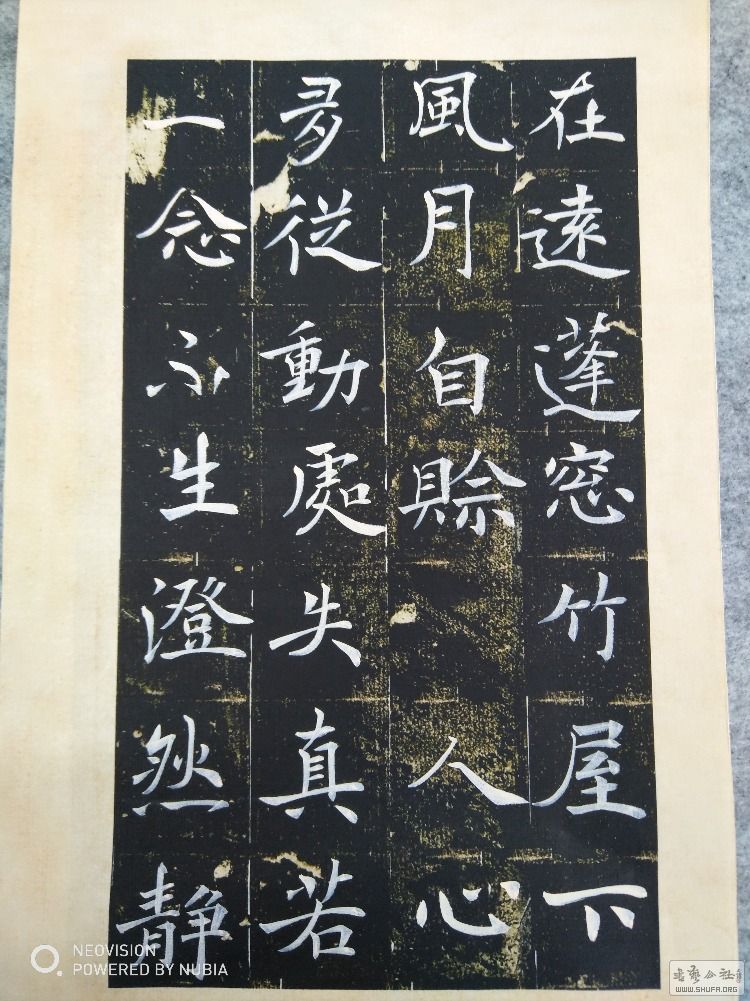 在遠蓬窓竹屋下
風月自賒人心
多從動處失真若
一念不生澄然靜
NEOVISION
POWERED BY NUBIA
WWW.SHUFA.ORG